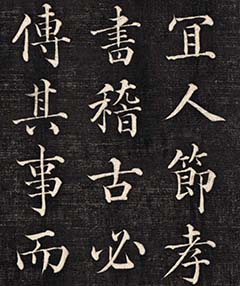 宜人節孝
書稽古必
傳其事而